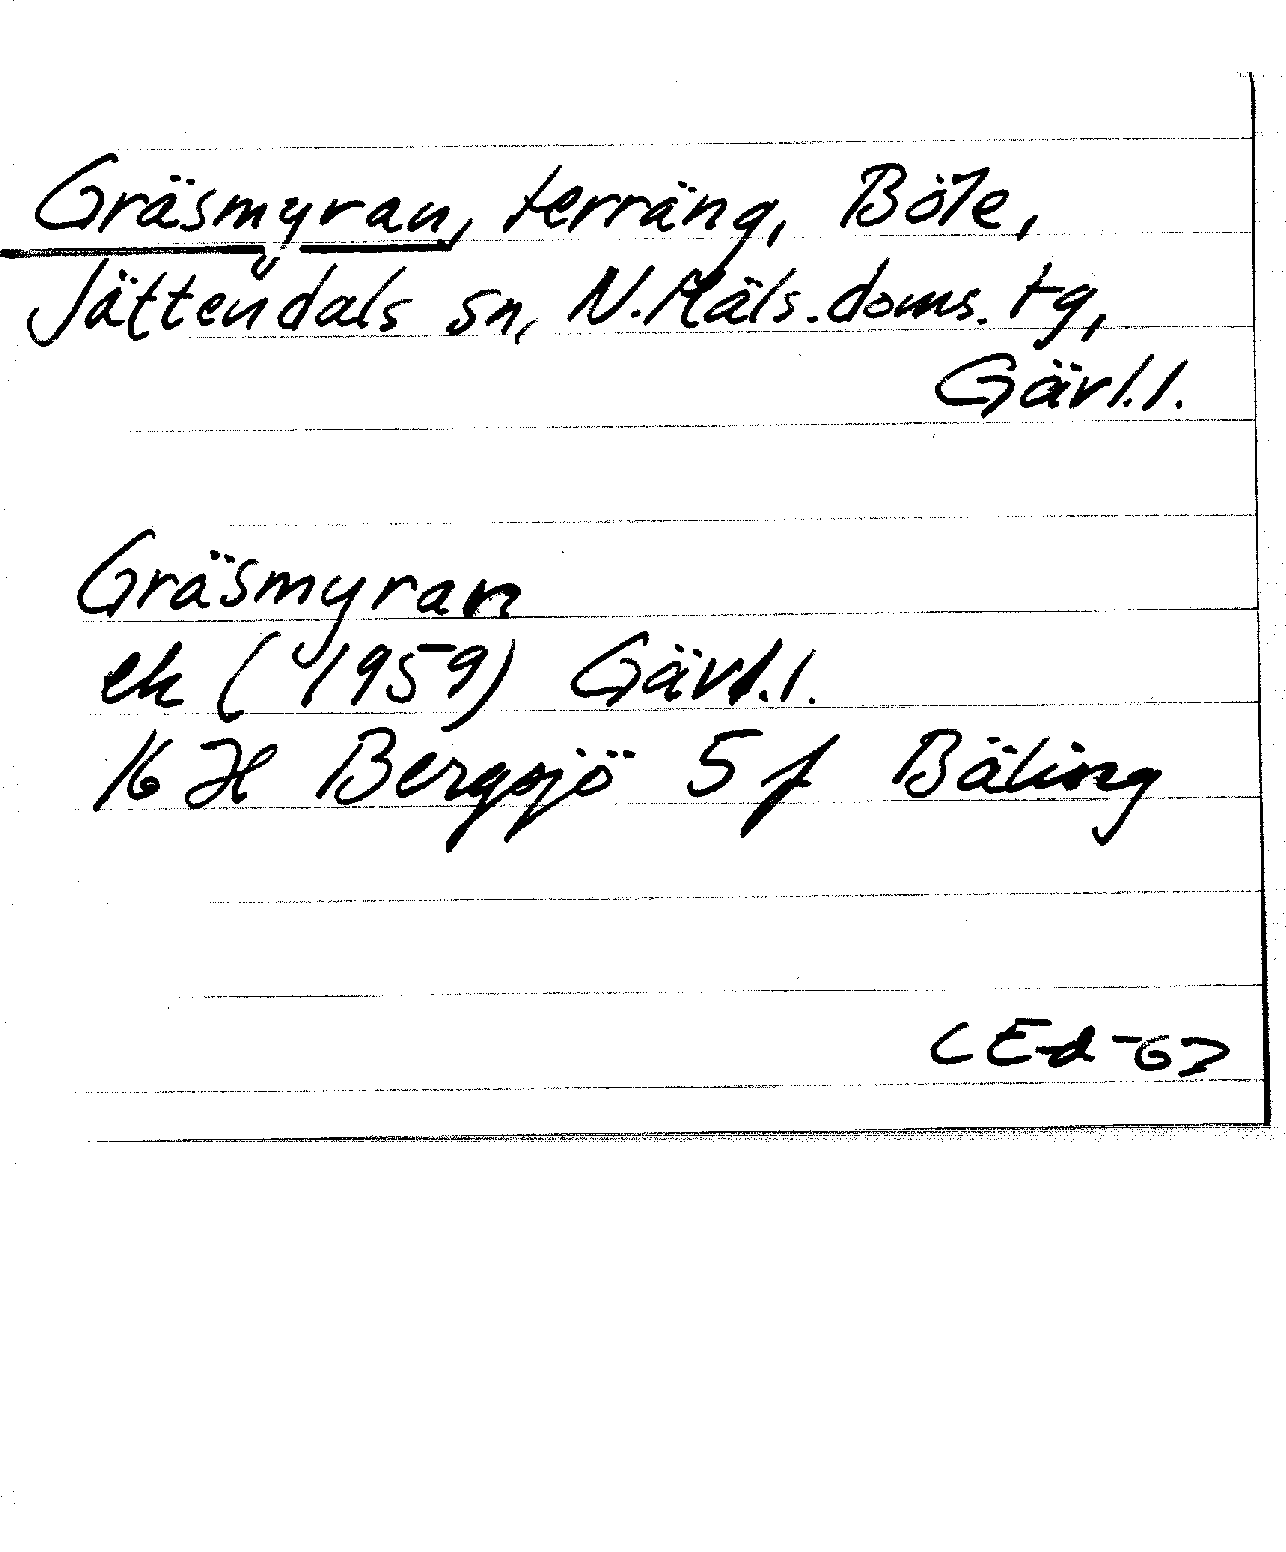 Gräsmyran, terräng, Böle,
Jättendals sn, N.Häls.doms.tg,
Gävl.l.
Gräsmyran
ek (1959) Gävl.l.
16 H Bergsjö 5 f Bäling
CEd-67